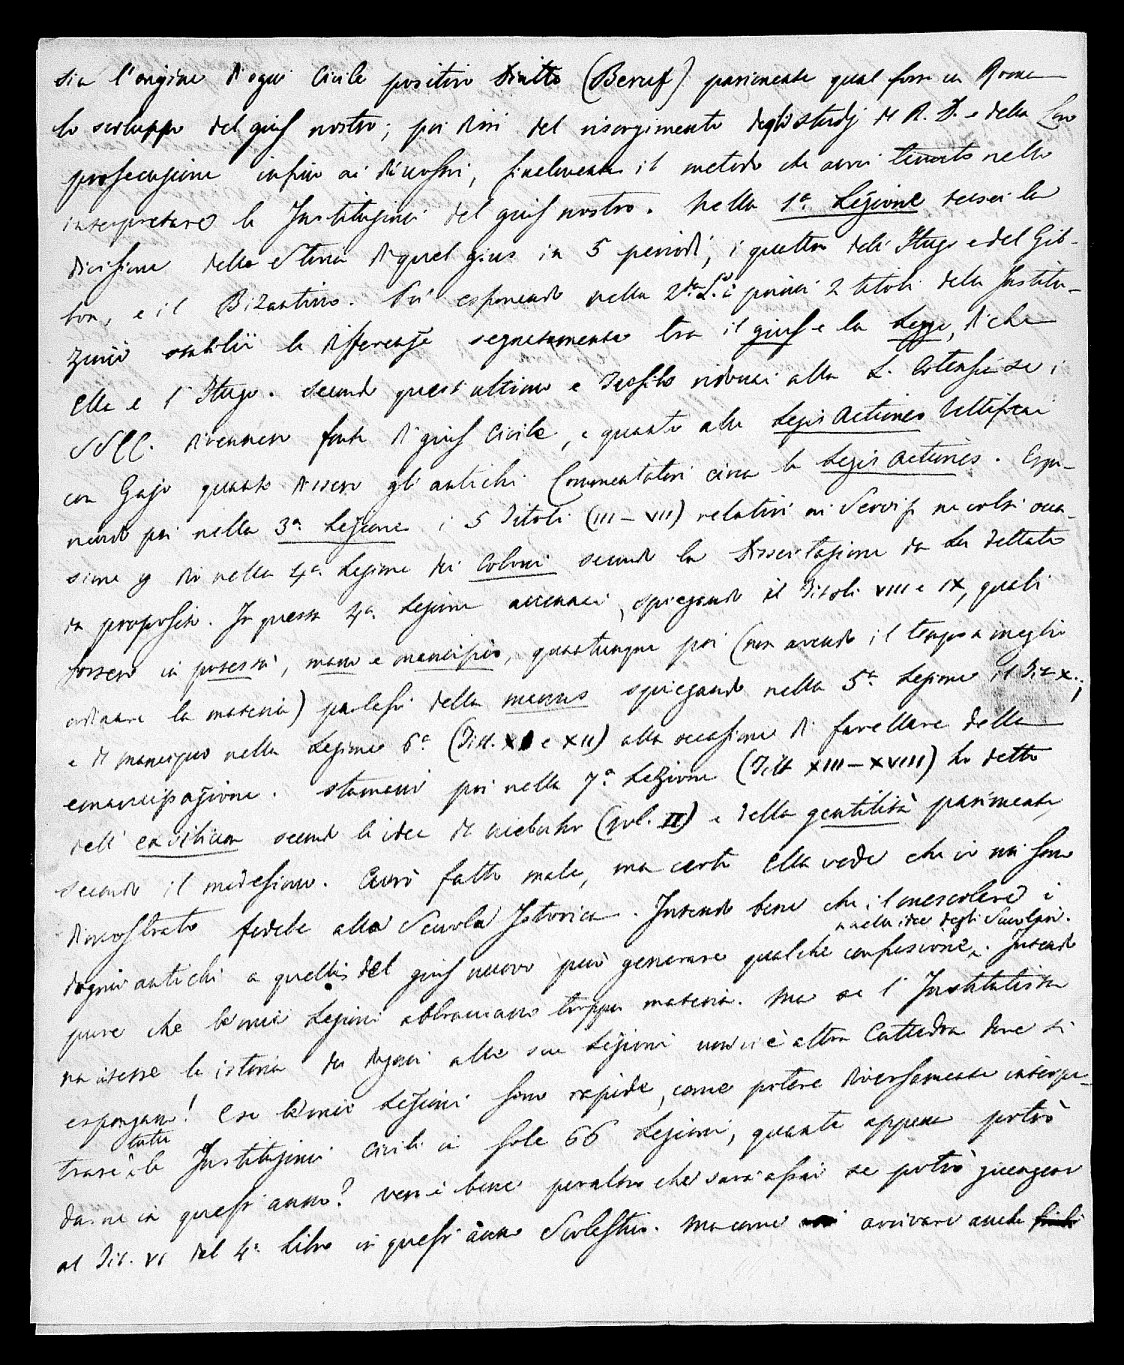 sia l'origine d'ogni Civile positivo Diritto (Beruf) parimente qual fosse in Roma
lo sviluppo del gius nostro; poi dissi del risorgimento degli studj di R. D. e della Loro
prosecuzione infino ai dì nostri, finalmente il metodo che avrei tenuto nello
interpretare le Instituzioni del gius nostro. Nella 1ª Lezione tessei la
divisione della Storia di quel gius in 5 periodi, i quattro dell'Hugo e del Gib-
bon, e il Bizantino. Poi esponendo nella 2da L. i primi 2 titoli delle Institu-
zioni stabilii le differenze segnatamente tra il gius e la Legge, di che
Ella e l'Hugo. Secondo quest'ultimo e Teofilo ridussi alla L. Ortensia se i
SSCC. divennero fonte di gius Civile, e quanto alle Legis actiones rettificai
con Gajo quanto dissero gli antichi Commentatori circa le Legis actiones. Espo-
nendo poi nella 3ª Lezione i 5 Titoli (III – VII) relativi ai Servi, ne colsi occa-
sione di dir nella 4ª Lezione dei Coloni secondo la Dissertazione da Lei dettata
da proposito. In questa 4ª Lezione accennai, spiegando il Titoli VIII e IX, quali
fossero in potestà, mano e mancipio, quantunque poi (non avendo il tempo a meglio
ordinare la materia) parlassi della manus spiegando nella 5ª Lezione il Tit X.;
e di mancipio nella Lezione 6ª (Titt. XI e XII) alla occasione di favellare della
emancipazione. Stamani poi nella 7ª Lezione (Titt XIII – XVIII) ho detto
dell' secondo le idee di Niebuhr (vol. II) e della gentilità parimente,
secondo il medesimo. Avrò fatto male, ma certo Ella vede che io mi sono
dimostrato fedele alla Scuola Istorica. Intendo bene che il mescolare i
dogmi antichi a quelli del gius nuovo può generare qualche confusione nelle idee degli Scolari. Intendo
pure che le mie Lezioni abbracciano troppa materia. Ma se l'Institutista
na istesse la istoria dei dogmi alle sue Lezioni non vi è altra Cattedra dove si
espongano! E se le mie Lezioni sono rapide, come potere diversamente interpe-
trare tutte le Instituzioni Civili in sole 66 Lezioni, quante appena potrò
darne in quest'anno? Ver è bene peraltro che sarà assai se potrò giungere
al Tit. VI del 4º Libro in quest'anno Scolastico. Ma come arrivare anche